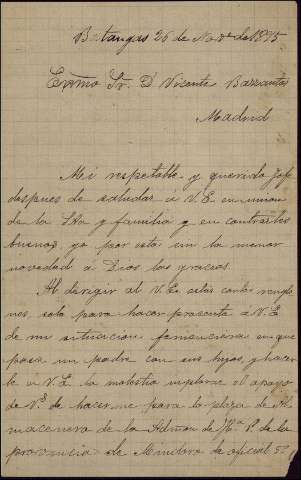 Batangas 26 de Nobre de 1895
Exmo Sr. D Vicente Barrantes
Madrid
Mi respetable y querido Jefe
despues de saludar á V.E. en union
de la Sra y familia y en contrarles
buenos, yo por esta sin la menor
novedad á Dios las gracias.
Al dirigir al V.E. estas cortas renglo
nes, solo para hacer presente á V.E
de mi situacion financiera en que
pasa un padre con sus hijos, y hacer
le á V.E. la molestia implorar el apoyo
de V.E. de hacerme para la plaza de Al
macenero de la Admon de Ha P. de la
provincia de Mindoro de oficial 5º